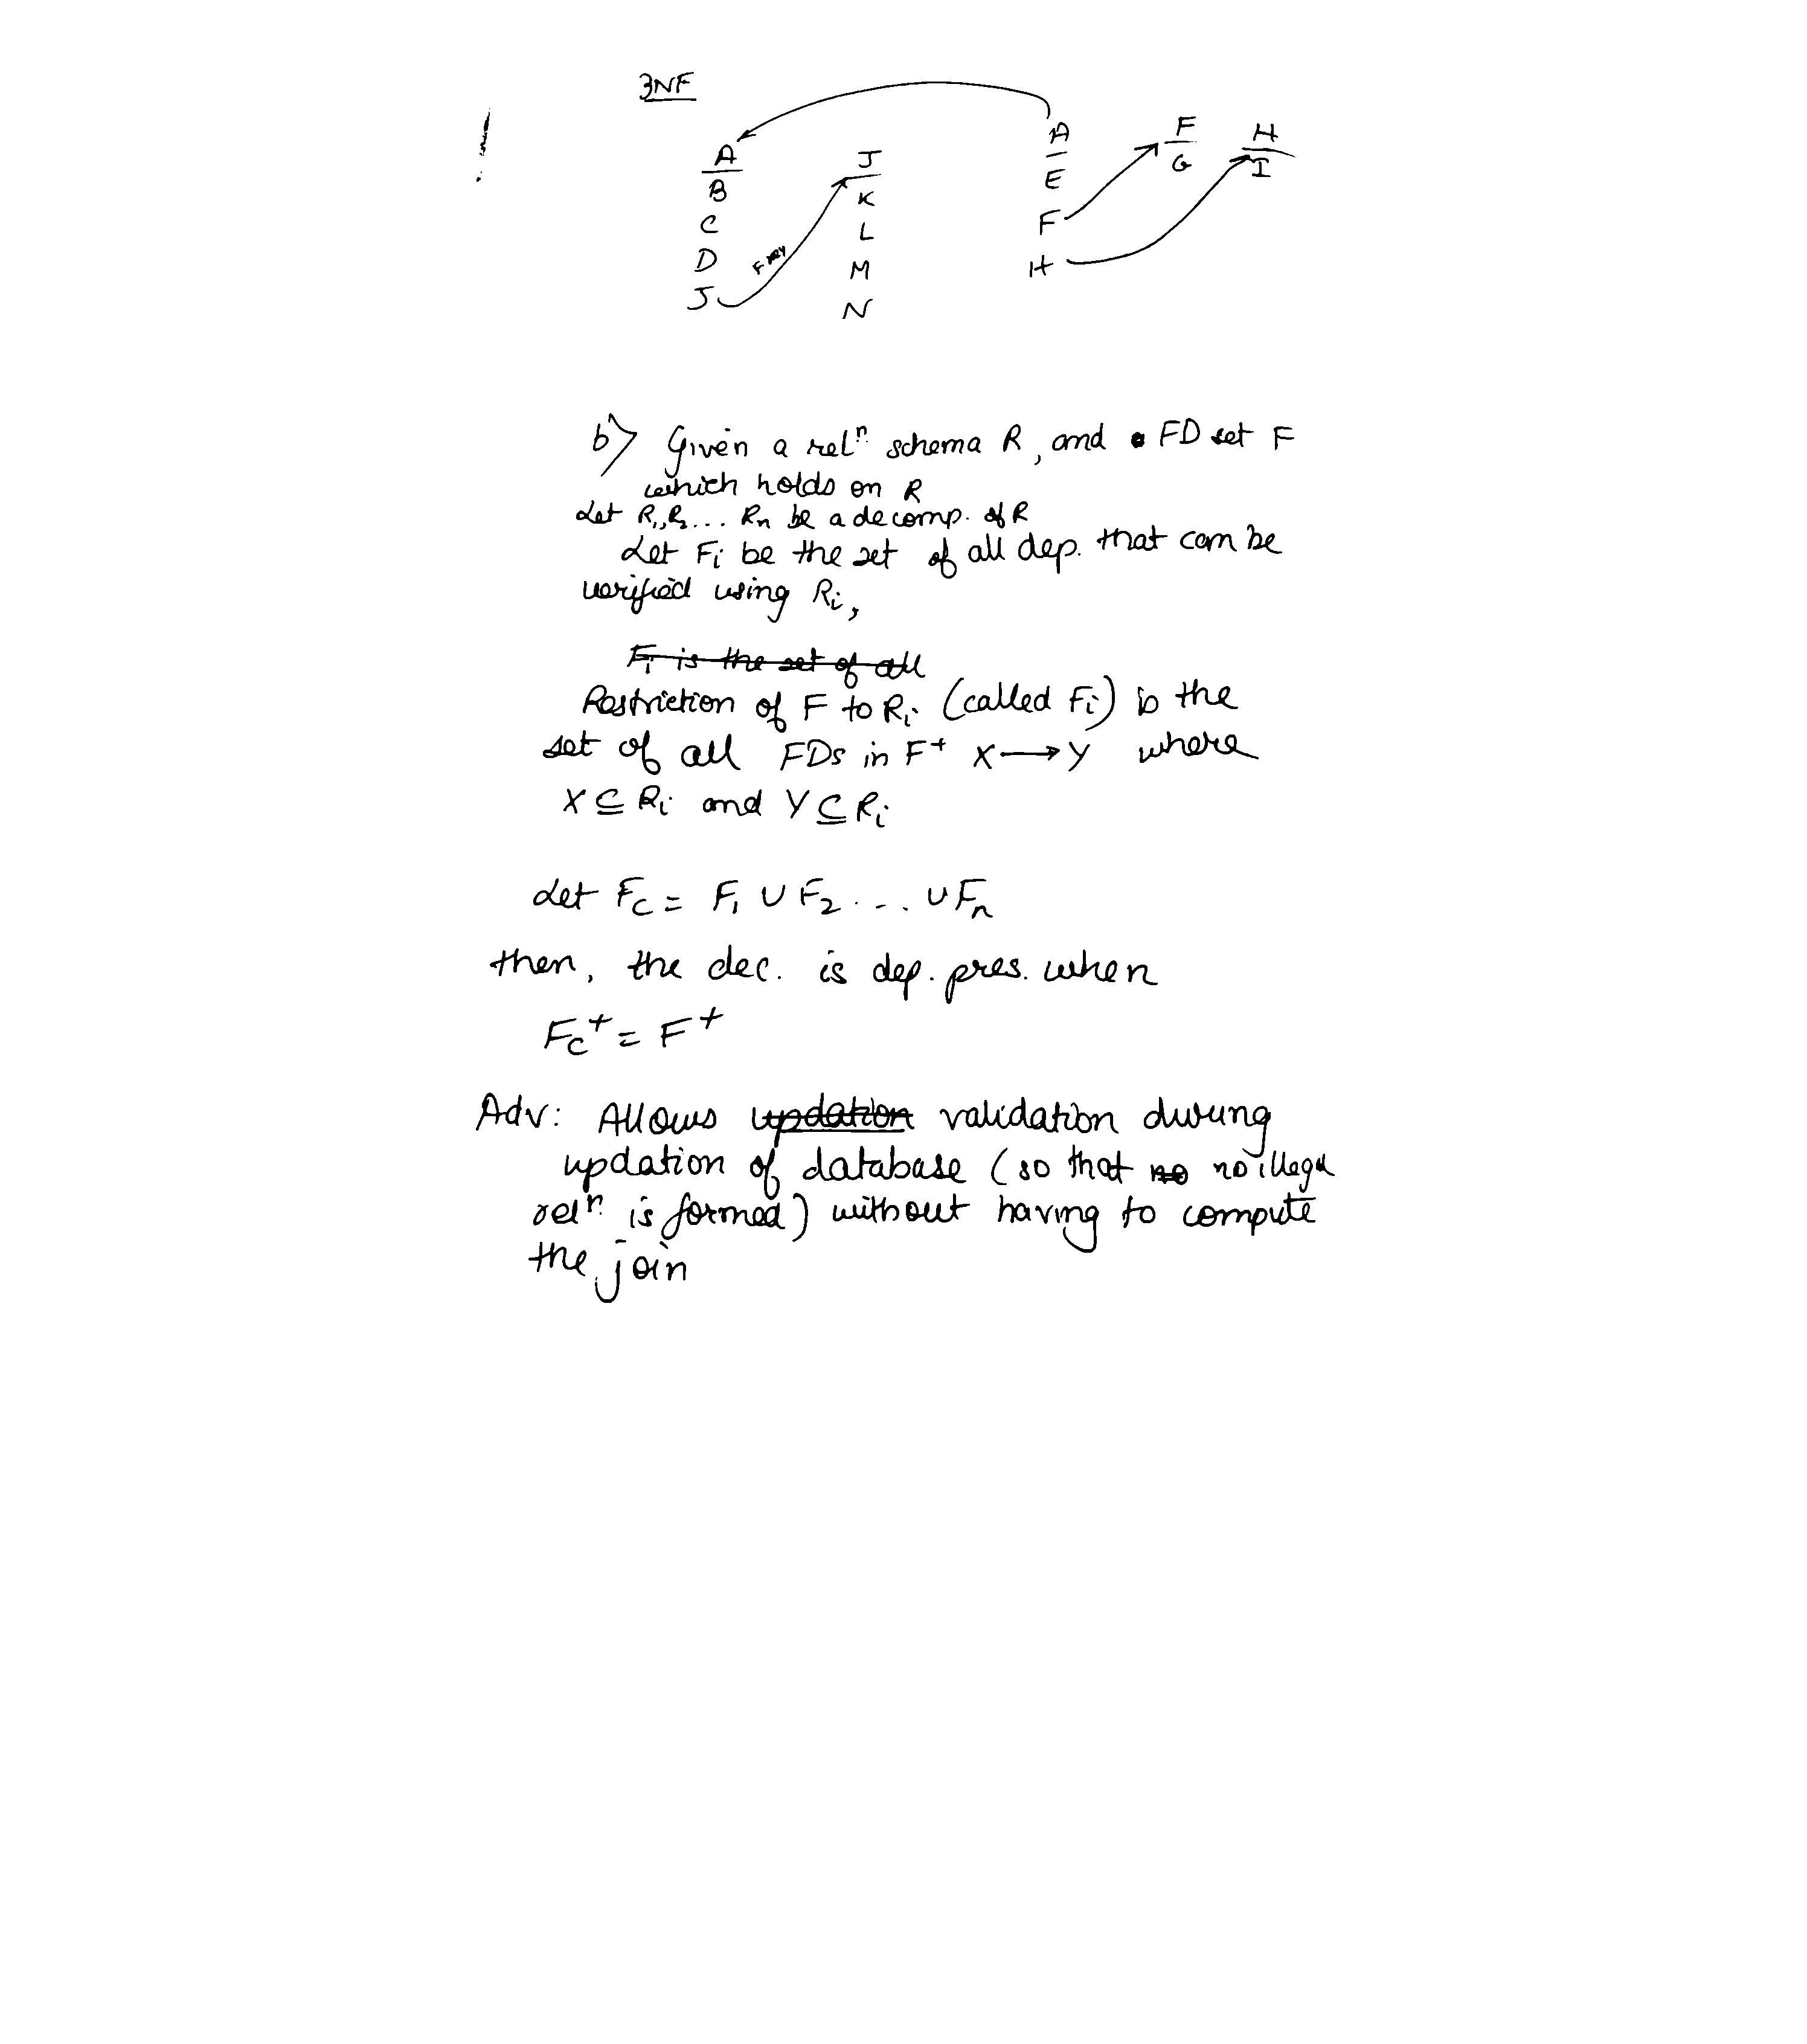 3NF
A
B
C
D
J
J
K
L
M
N
A
E
F
H
F
G
H
I
b) Given a relⁿ schema R, and FD set F
which holds on R
Let R₁, R₂ ... Rn be a decomp. of R
Let Fi be the set of all dep. that can be
verified using Ri,
Fi is the set of all
Restriction of F to Ri (called Fi) is the
set of all FDs in F⁺ X → Y where
X ⊆ Ri and Y ⊆ Ri
Let Fc = F₁ ∪ F₂ ... ∪ Fn
then, the dec. is dep. pres. when
Fc⁺ = F⁺
Adv: Allows updation validation during
updation of database (so that no no illegal
relⁿ is formed) without having to compute
the join